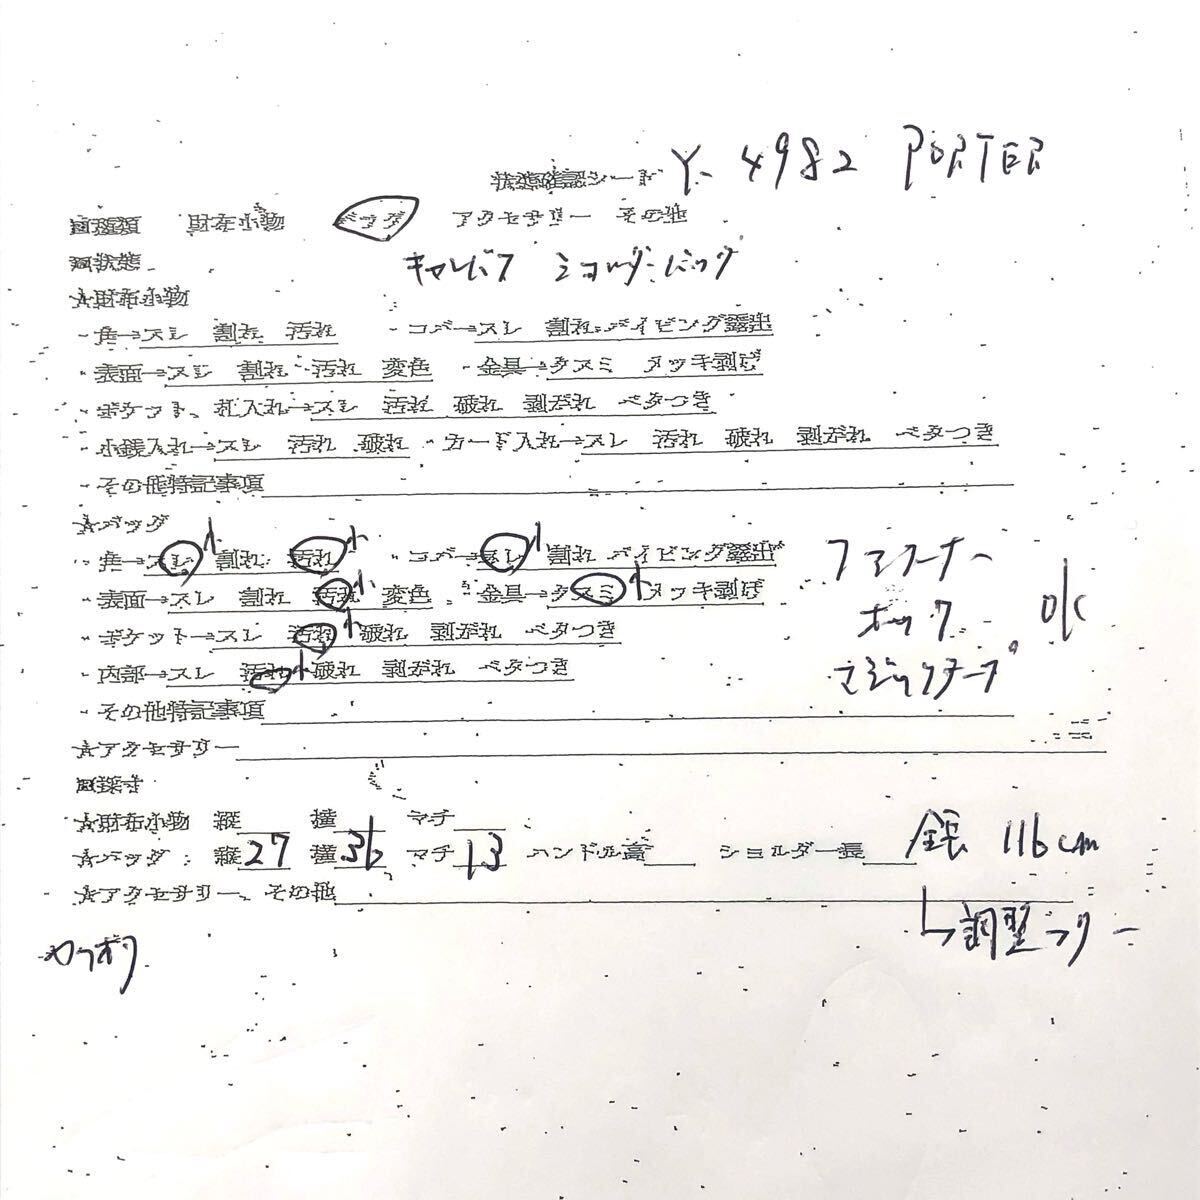 状態確認シート Y-4982 PORTER
種類 財布小物 バッグ アクセサリー その他
状態 キャンバス ショルダーバッグ
★財布小物
・角→スレ 割れ 汚れ ・コバ→スレ 割れ パイピング露出
・表面→スレ 割れ 汚れ 変色 ・金具→クスミ メッキ剥げ
・ポケット、札入れ→スレ 汚れ 破れ 剥がれ ベタつき
・小銭入れ→スレ 汚れ 破れ ・カード入れ→スレ 汚れ 破れ 剥がれ ベタつき
・その他特記事項
★バッグ
・角→スレ小 割れ 汚れ小 ・コバ→スレ小 割れ パイピング露出 ファスナー
・表面→スレ 割れ 汚れ小 変色 ・金具→クスミ小 メッキ剥げ ホック OK
・ポケット→スレ 汚れ小 破れ 剥がれ ベタつき マジックテープ
・内部→スレ 汚れ小 破れ 剥がれ ベタつき
・その他特記事項
★アクセサリー
採寸
★財布小物 縦 横 マチ
★バッグ : 縦27 横36 マチ13 ハンドル高 ショルダー長 全長 116cm
★アクセサリー、その他
↳調整フリー